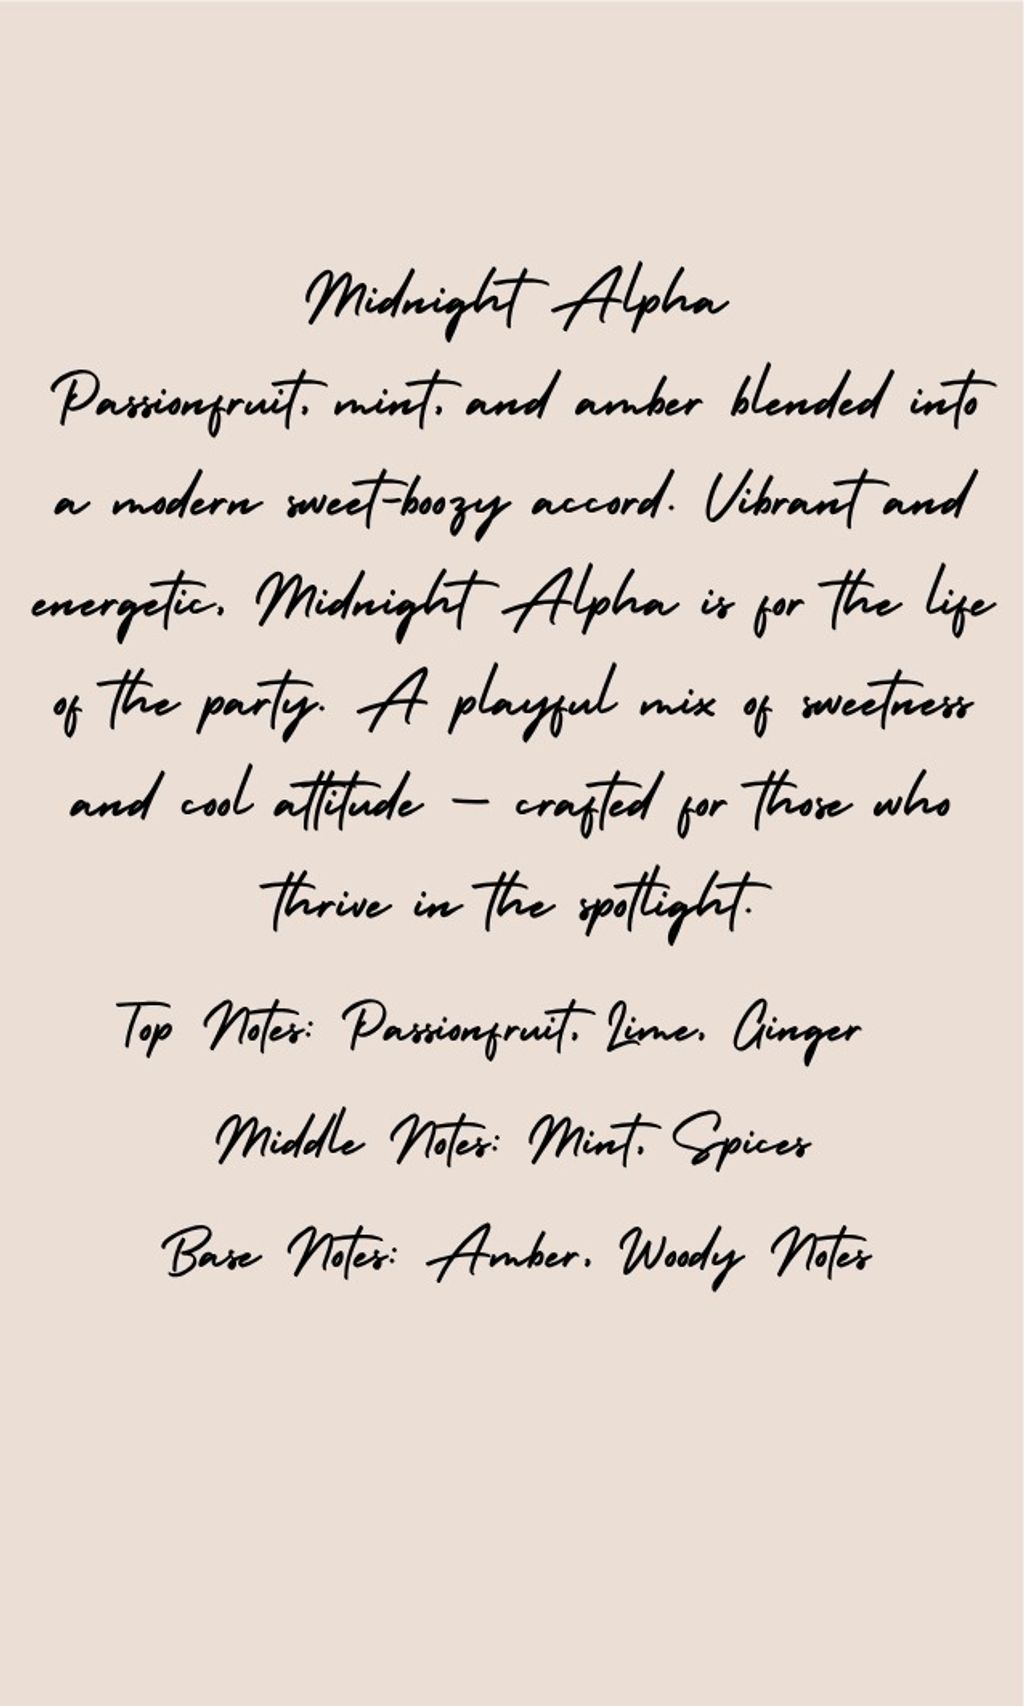 Midnight Alpha
Passionfruit, mint, and amber blended into
a modern sweet-boozy accord. Vibrant and
energetic, Midnight Alpha is for the life
of the party. A playful mix of sweetness
and cool attitude — crafted for those who
thrive in the spotlight.
Top Notes: Passionfruit, Lime, Ginger
Middle Notes: Mint, Spices
Base Notes: Amber, Woody Notes